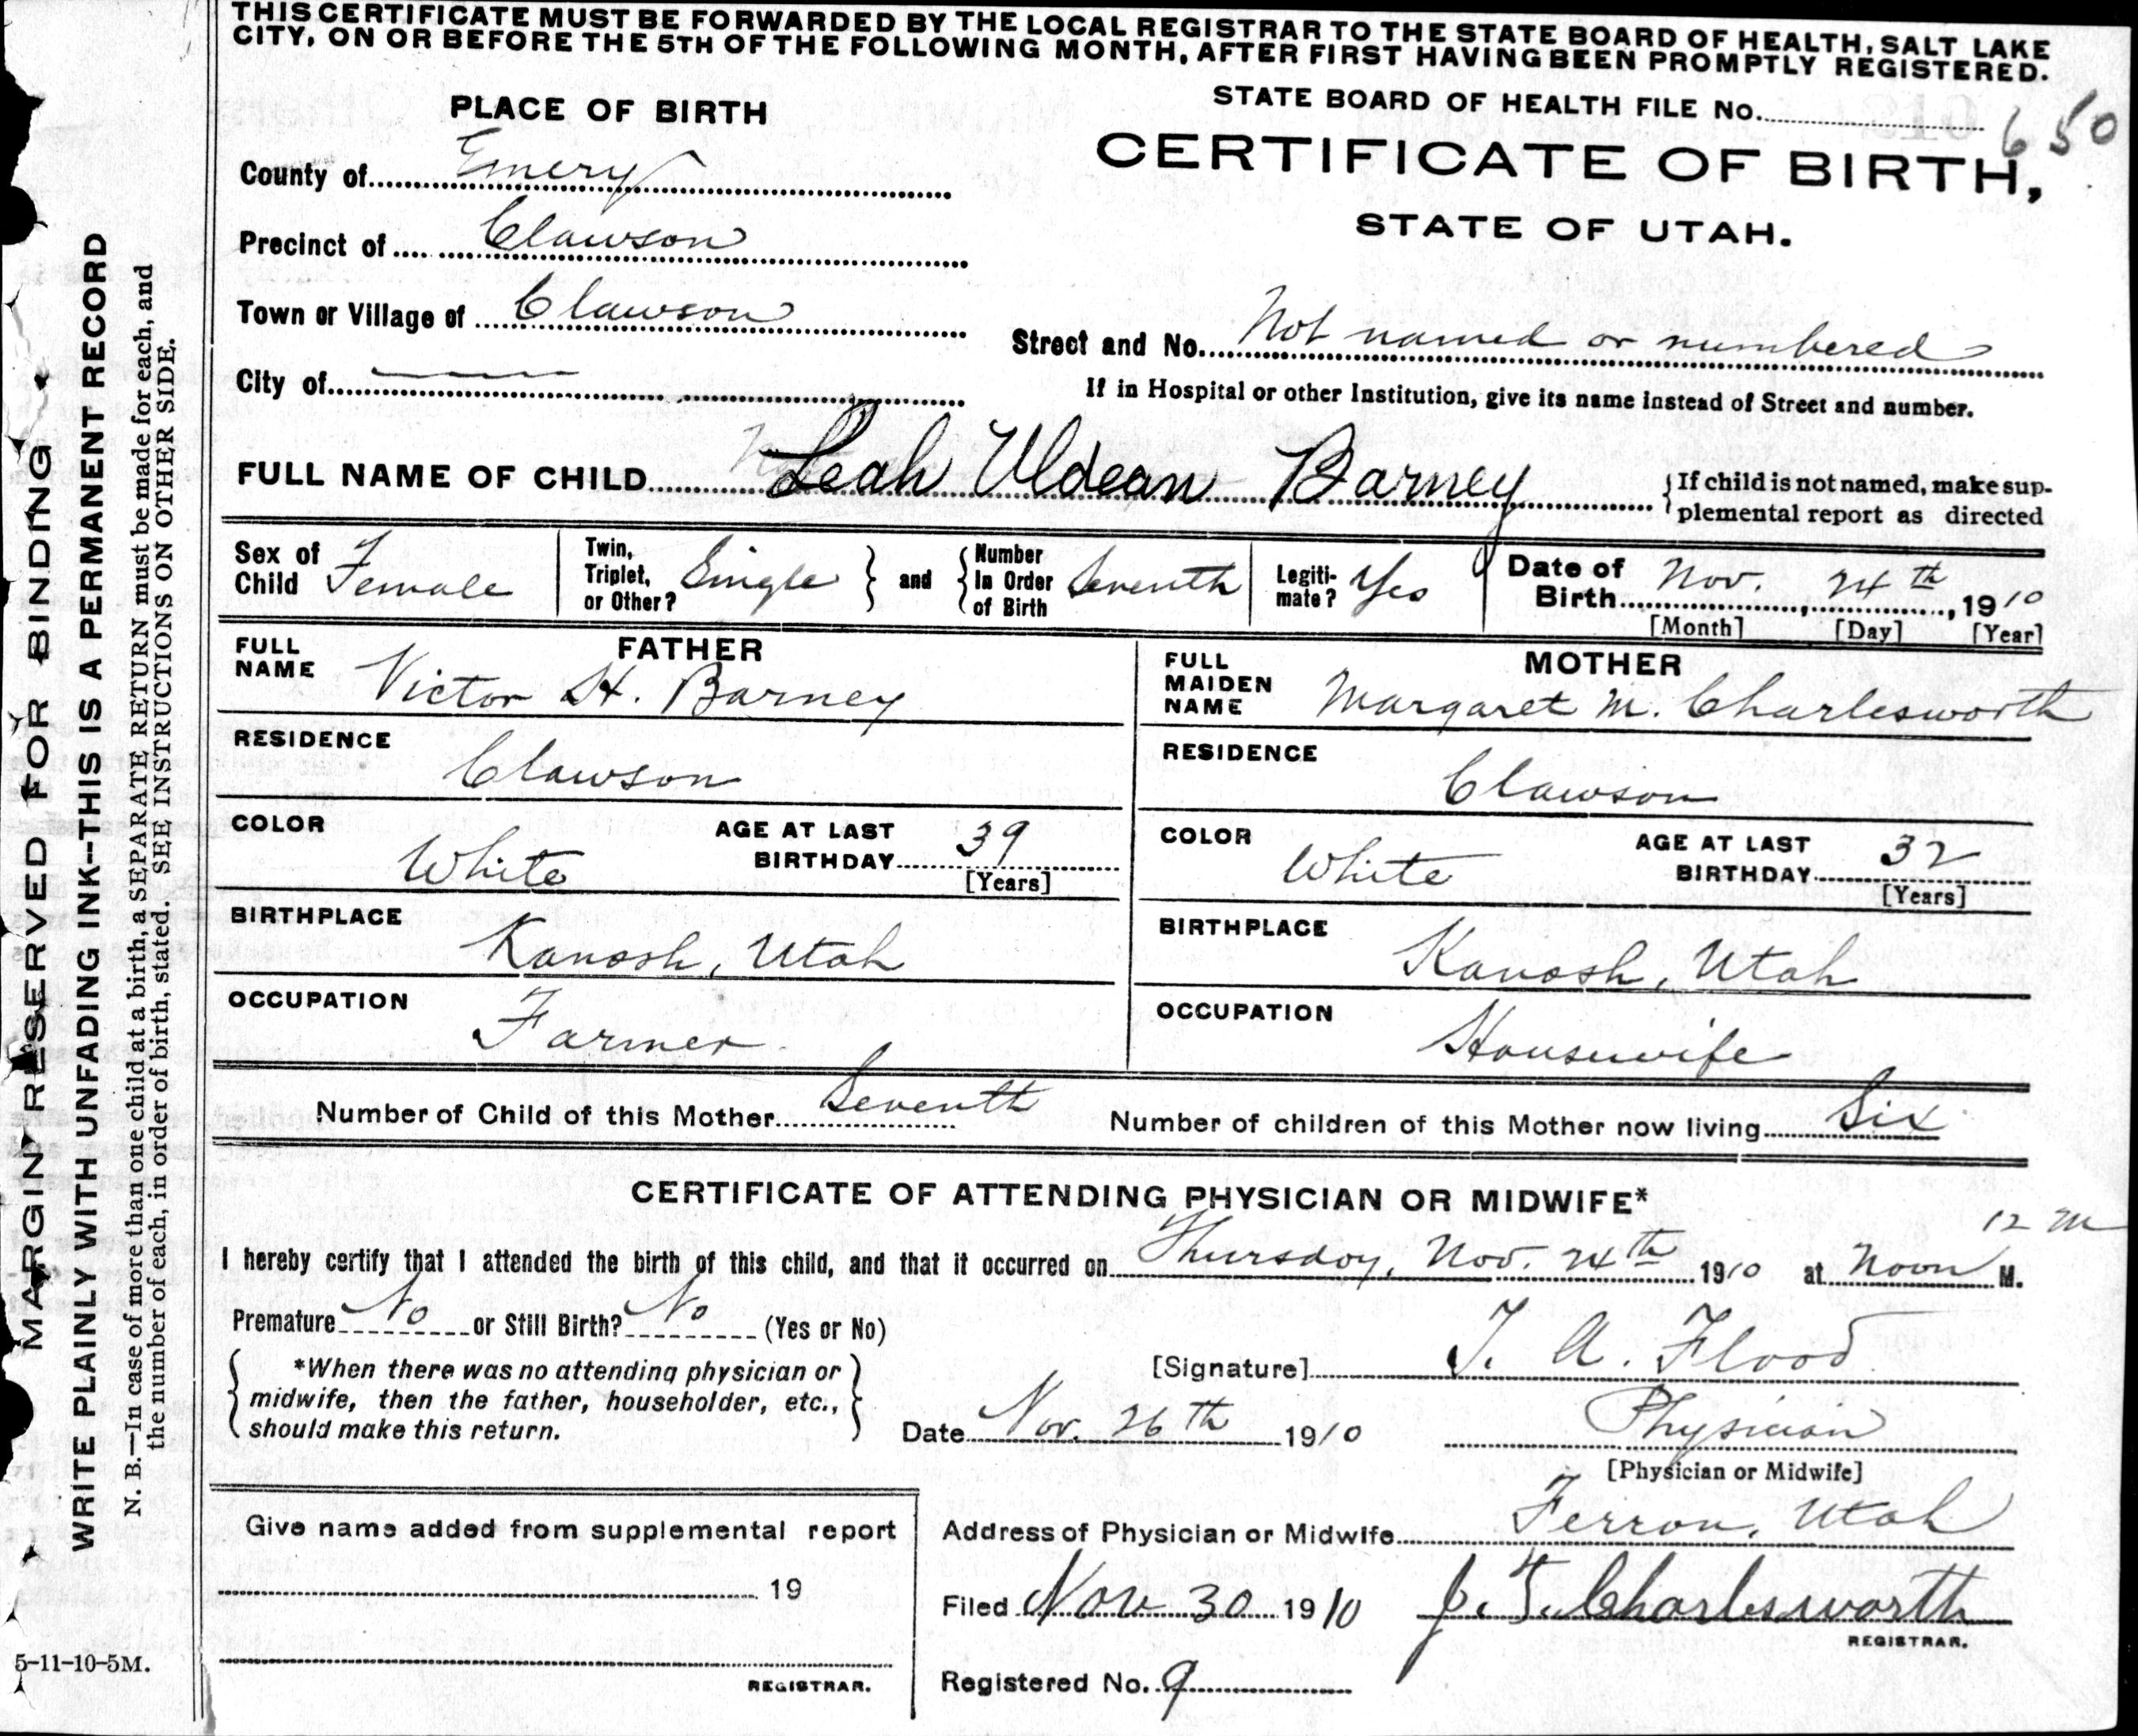 THIS CERTIFICATE MUST BE FORWARDED BY THE LOCAL REGISTRAR TO THE STATE BOARD OF HEALTH, SALT LAKE
CITY, ON OR BEFORE THE 5TH OF THE FOLLOWING MONTH, AFTER FIRST HAVING BEEN PROMPTLY REGISTERED.
PLACE OF BIRTH
STATE BOARD OF HEALTH FILE No. 650
CERTIFICATE OF BIRTH,
STATE OF UTAH.
County of Emery
Precinct of Clawson
Town or Village of Clawson
Street and No. Not named or numbered
City of
If in Hospital or other Institution, give its name instead of Street and number.
FULL NAME OF CHILD Leah Uldean Barney
If child is not named, make sup-
plemental report as directed
Sex of Child Female
Twin, Triplet, or Other? Single and Number In Order of Birth Seventh
Legiti-mate? Yes
Date of Birth Nov. 24th, 1910
[Month] [Day] [Year]
FATHER
FULL NAME Victor H. Barney
RESIDENCE Clawson
COLOR White
AGE AT LAST BIRTHDAY 39
[Years]
BIRTHPLACE Kanosh, Utah
OCCUPATION Farmer
MOTHER
FULL MAIDEN NAME Margaret M. Charlesworth
RESIDENCE Clawson
COLOR White
AGE AT LAST BIRTHDAY 32
[Years]
BIRTHPLACE Kanosh, Utah
OCCUPATION Housewife
Number of Child of this Mother Seventh
Number of children of this Mother now living Six
CERTIFICATE OF ATTENDING PHYSICIAN OR MIDWIFE*
12 M
I hereby certify that I attended the birth of this child, and that it occurred on Thursday, Nov. 24th 1910 at Noon M.
Premature No or Still Birth? No (Yes or No)
*When there was no attending physician or
midwife, then the father, householder, etc.,
should make this return.
[Signature] T. A. Flood
Date Nov. 26th 1910
Physician
[Physician or Midwife]
Give name added from supplemental report
19
REGISTRAR.
Address of Physician or Midwife Ferron, Utah
Filed Nov 30 1910 J. T. Charlesworth
REGISTRAR.
Registered No. 9
MARGIN RESERVED FOR BINDING
WRITE PLAINLY WITH UNFADING INK--THIS IS A PERMANENT RECORD
N. B.—In case of more than one child at a birth, a SEPARATE RETURN must be made for each, and
the number of each, in order of birth, stated. SEE INSTRUCTIONS ON OTHER SIDE.
5-11-10-5M.